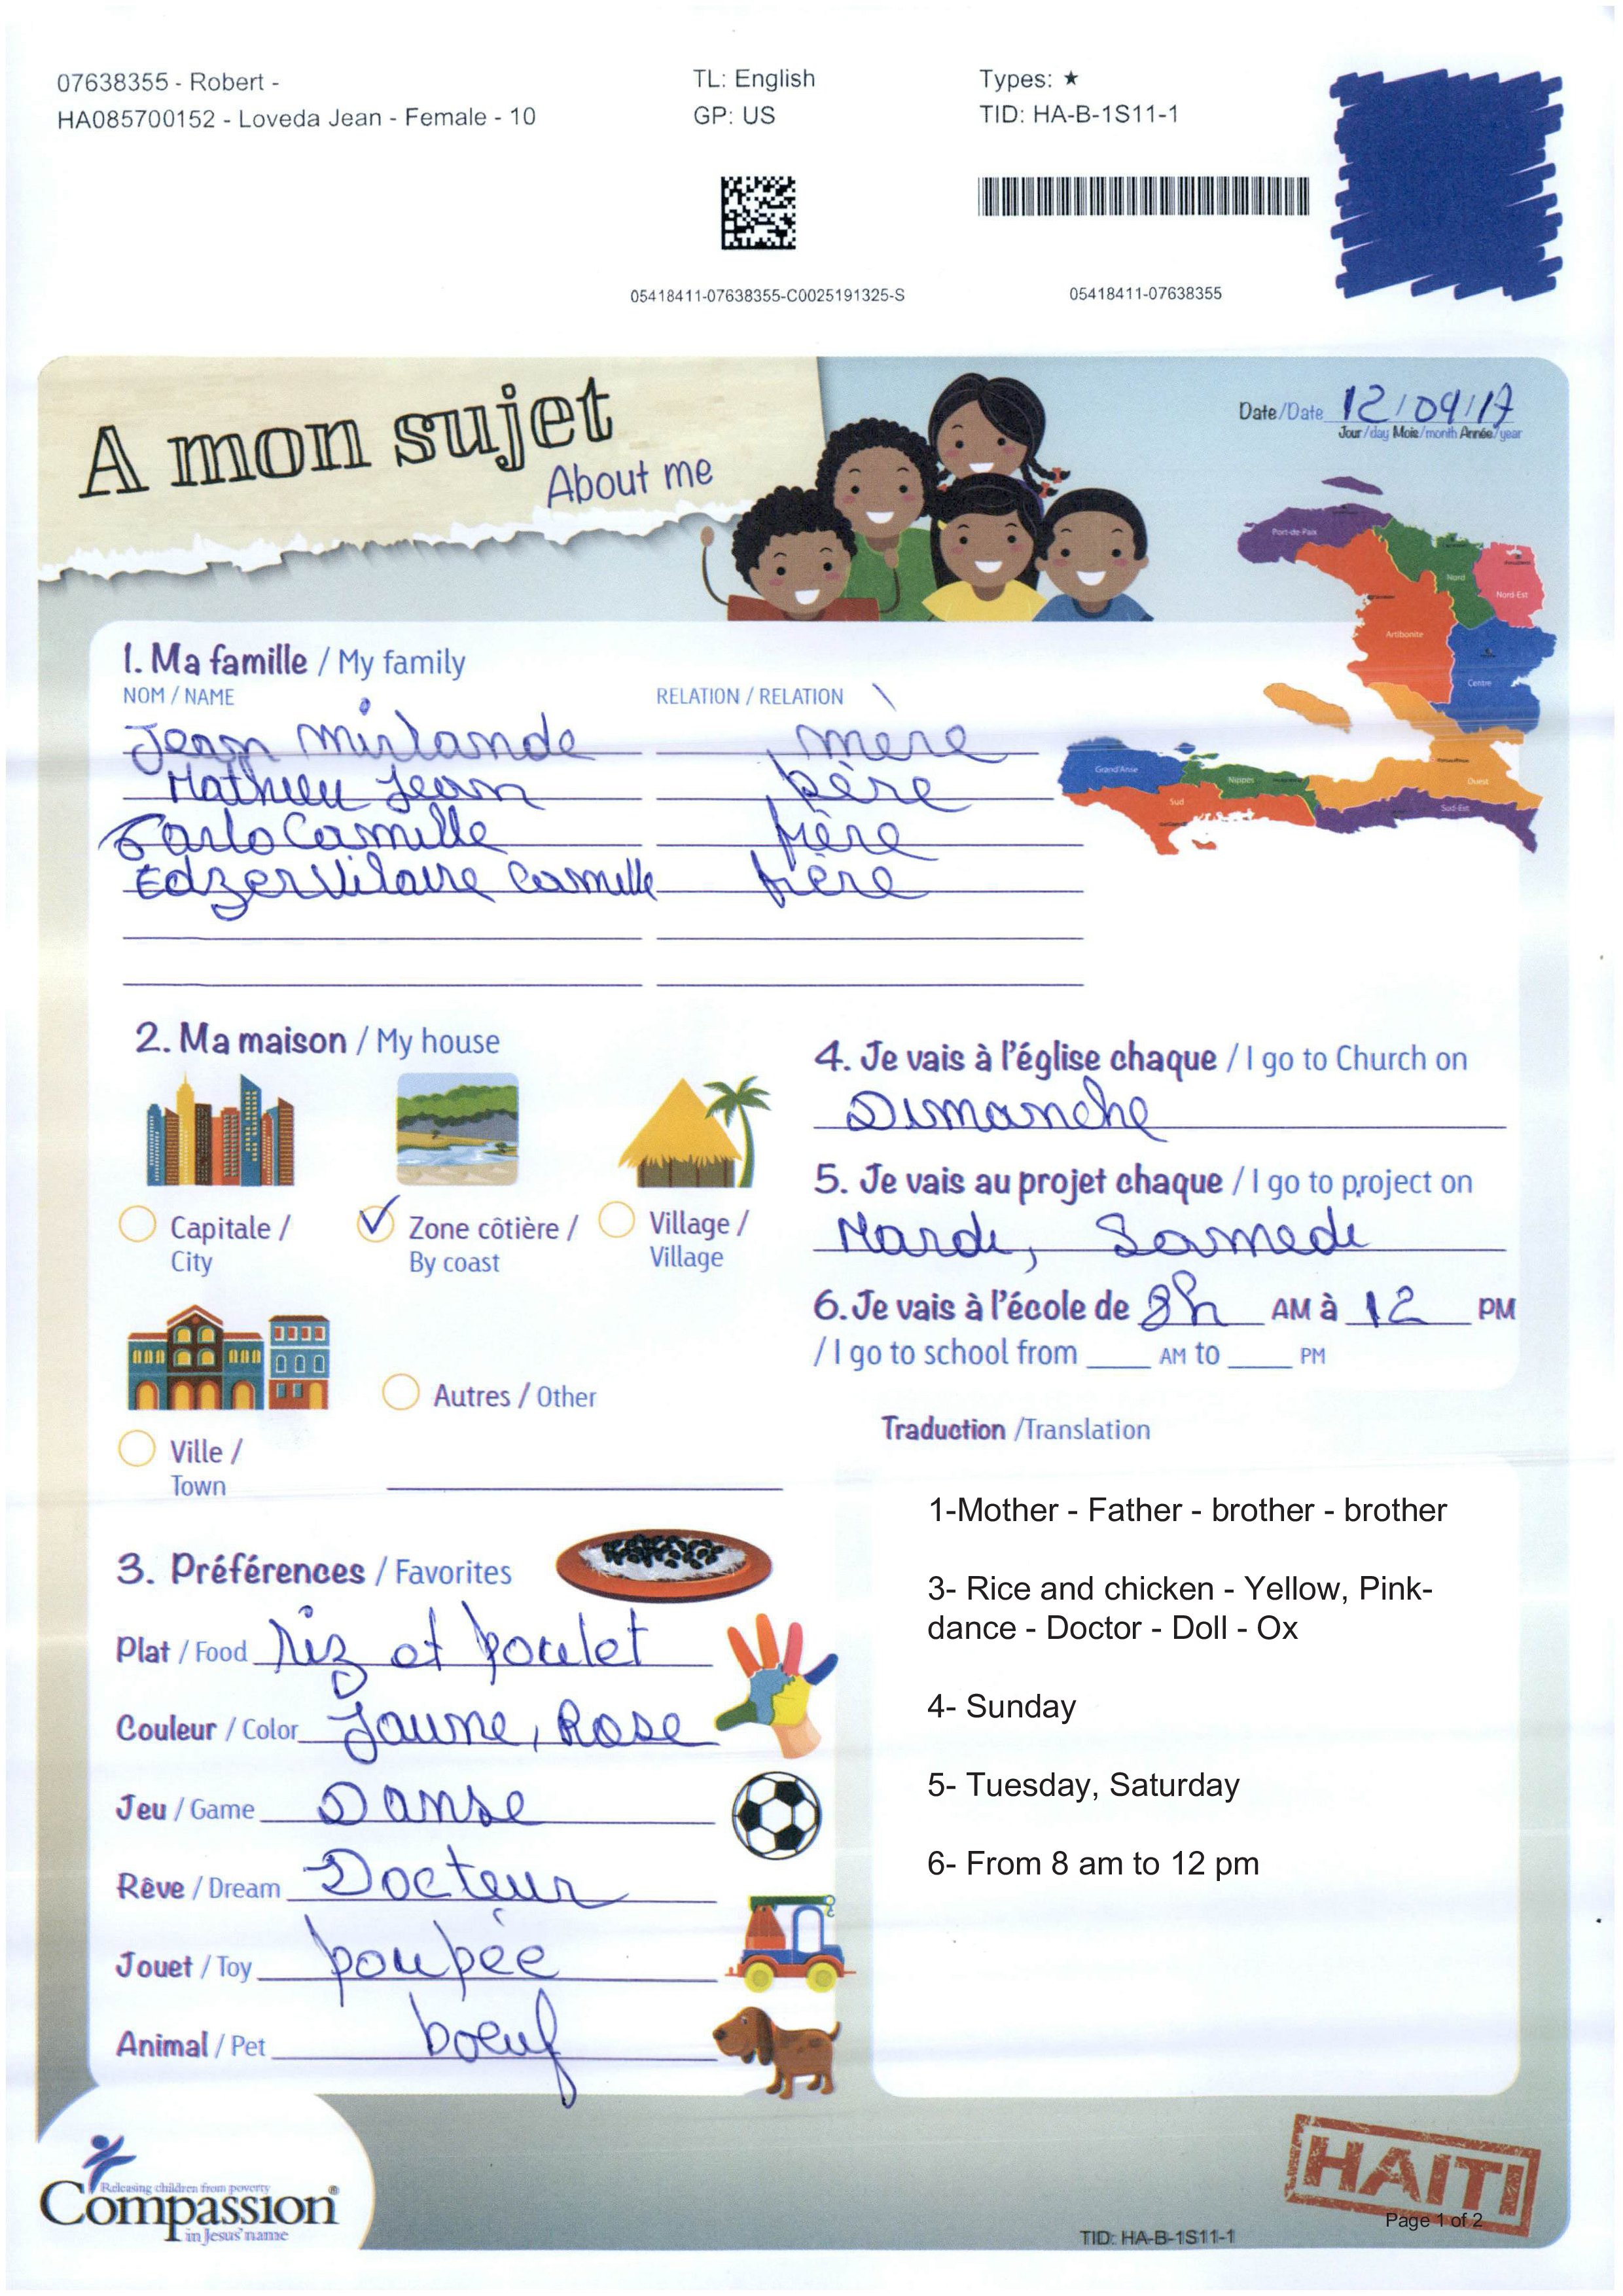 07638355 - Robert -
HA085700152 - Loveda Jean - Female - 10
TL: English
GP: US
Types: ★
TID: HA-B-1S11-1
05418411-07638355-C0025191325-S
05418411-07638355
A mon sujet
About me
Date/Date 12/09/17
Jour/day Mois/month Année/year
Port-de-Paix
Nord
Nord-Est
Artibonite
Centre
Grand'Anse
Nippes
Ouest
Sud
Sud-Est
1. Ma famille / My family
NOM / NAME RELATION / RELATION
Jean Mirlande mère
Mathieu Jean père
Carlo Camille frère
Edzer Vilaire Camille frère
2. Ma maison / My house
Capitale /
City
Zone côtière /
By coast
Village /
Village
Ville /
Town
Autres / Other
3. Préférences / Favorites
Plat / Food riz et poulet
Couleur / Color Jaune, Rose
Jeu / Game Danse
Rêve / Dream Docteur
Jouet / Toy poupée
Animal / Pet boeuf
4. Je vais à l'église chaque / I go to Church on
Dimanche
5. Je vais au projet chaque / I go to project on
Mardi, Samedi
6. Je vais à l'école de 8h AM à 12 PM
/ I go to school from ____ AM to ____ PM
Traduction /Translation
1-Mother - Father - brother - brother
3- Rice and chicken - Yellow, Pink-
dance - Doctor - Doll - Ox
4- Sunday
5- Tuesday, Saturday
6- From 8 am to 12 pm
Releasing children from poverty
Compassion®
in Jesus' name
HAITI
Page 1 of 2
TID: HA-B-1S11-1